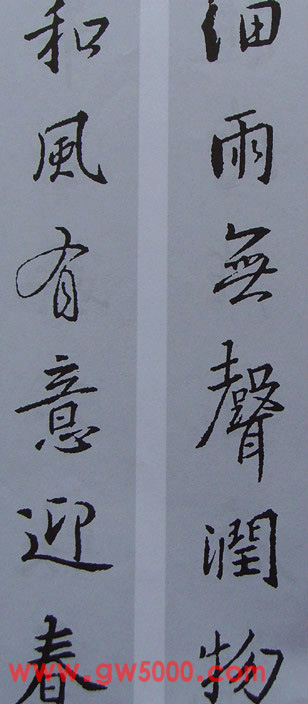 细雨無聲潤物
和風有意迎春
www.gw5000.com